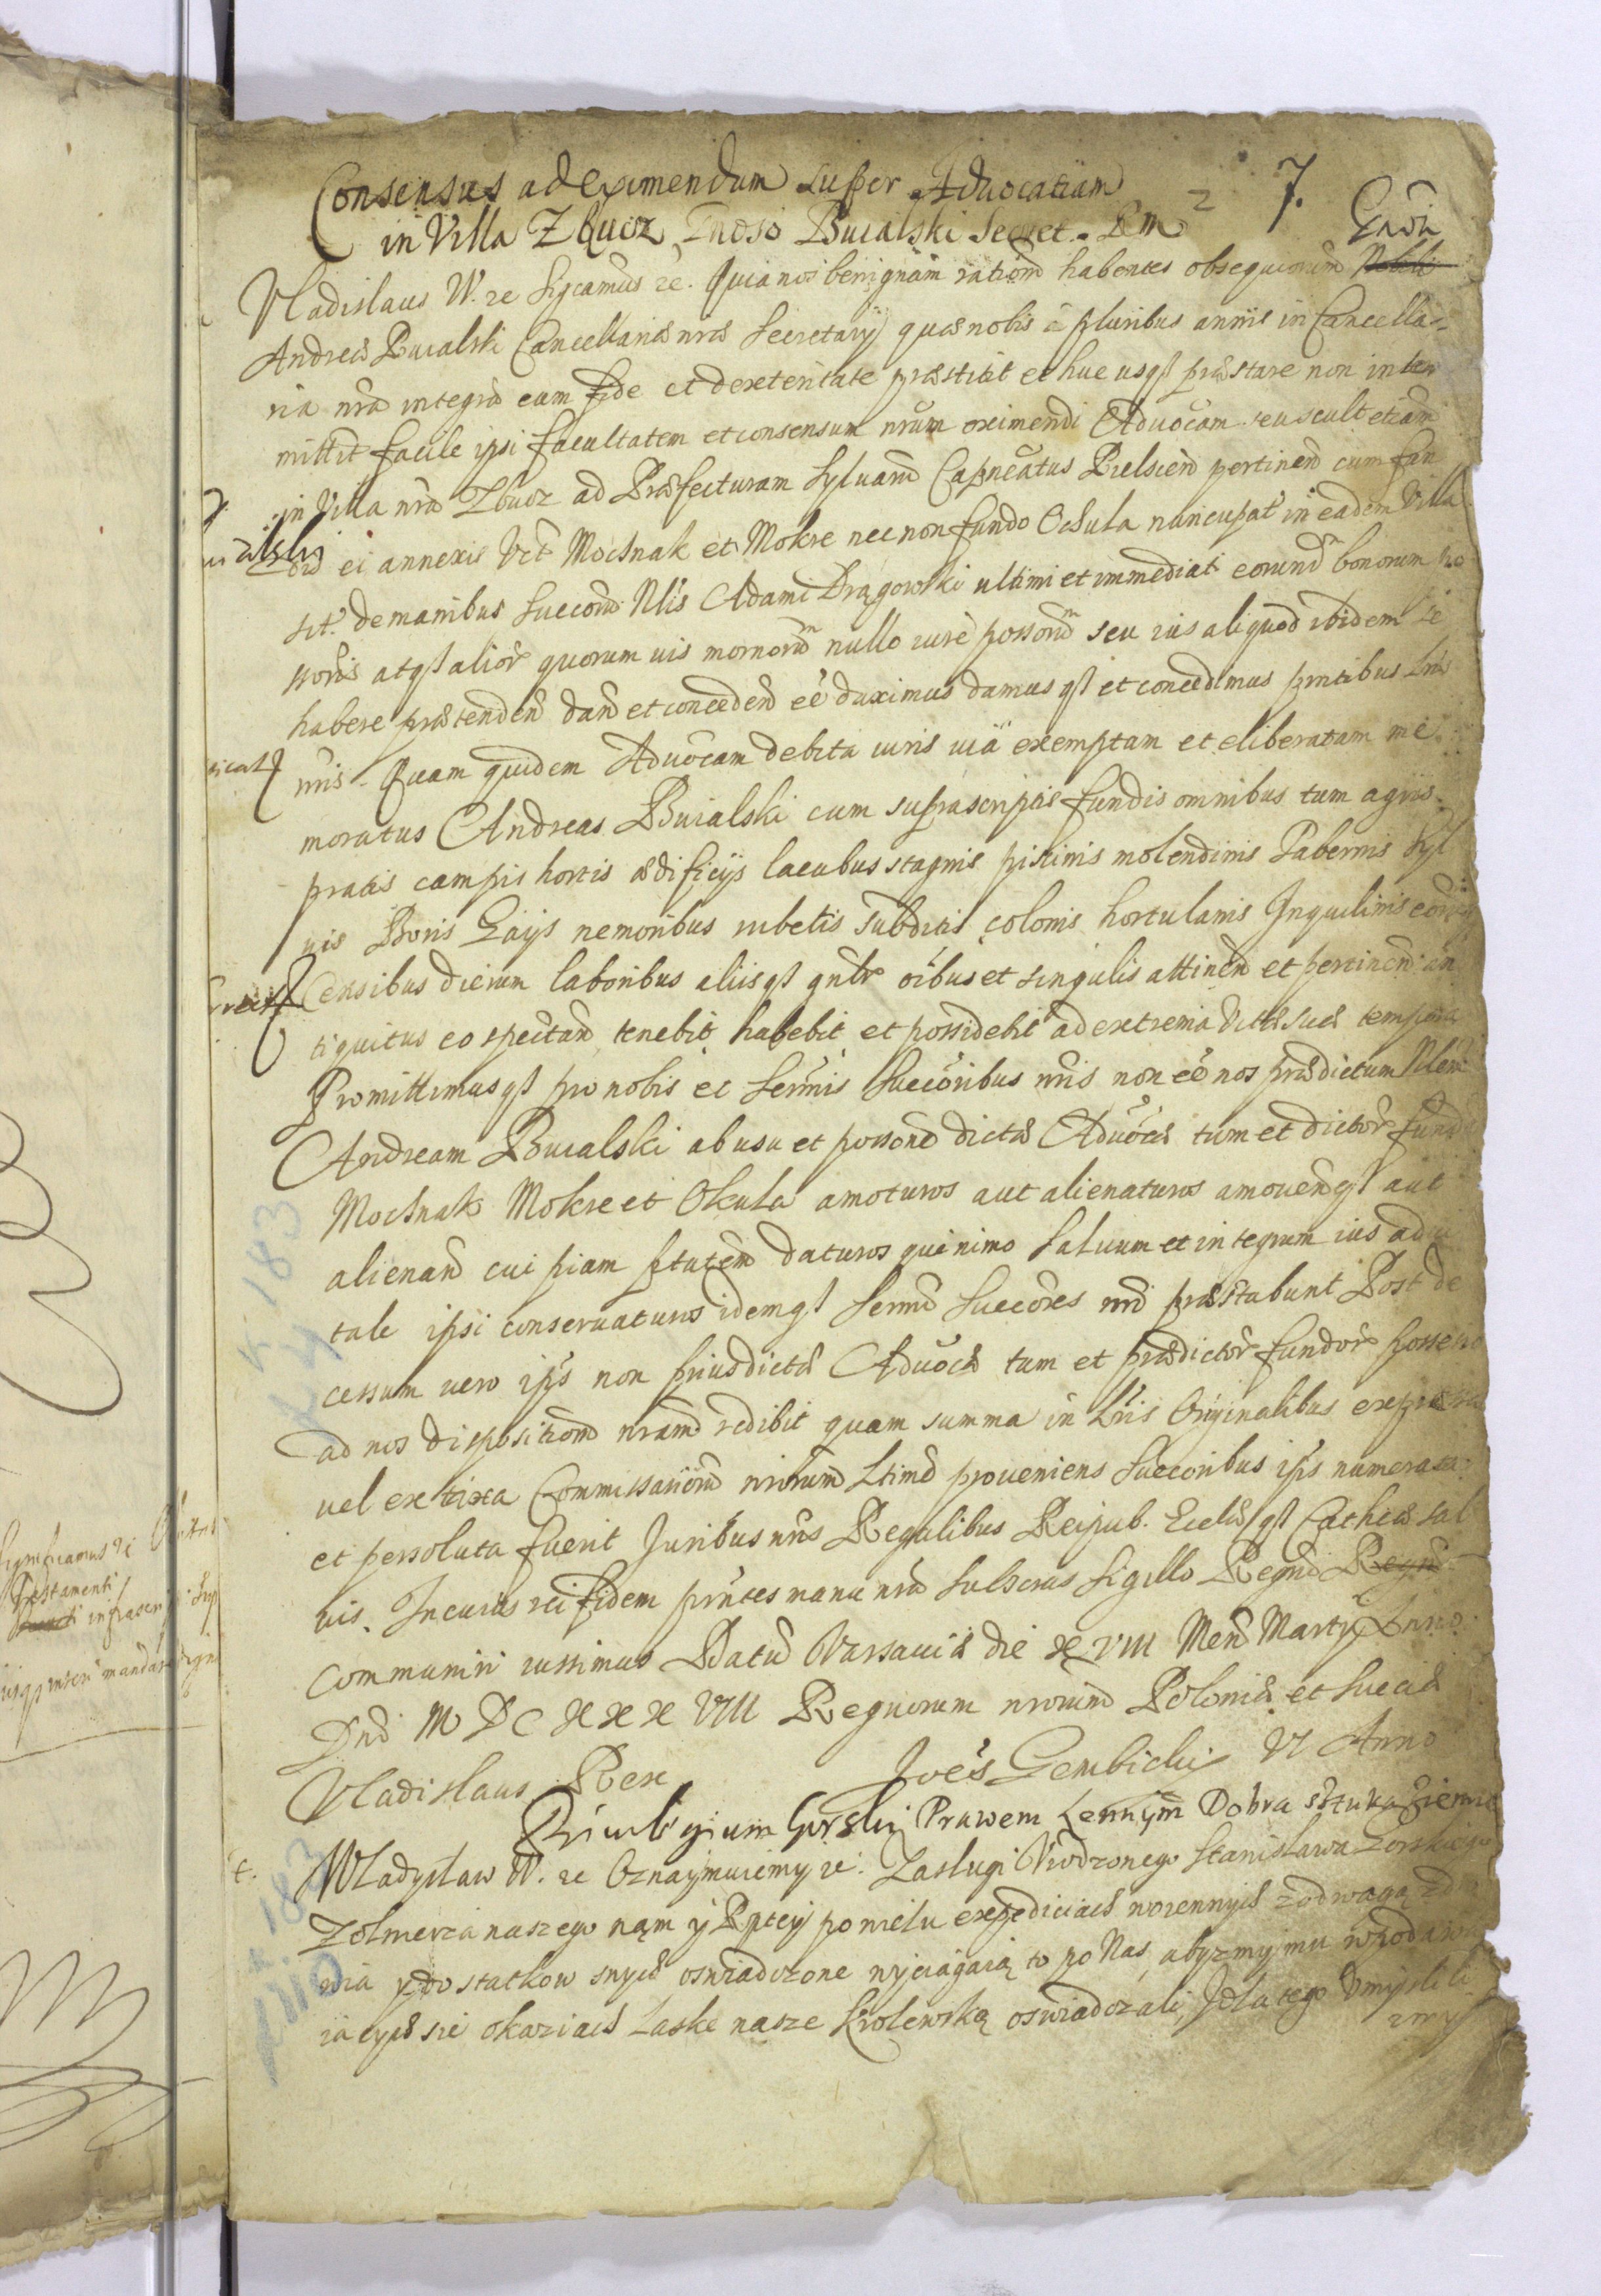 Consensus ad eximendum super Aduocatiam 7.
in Villa Zbucz Gnoso Buialski Secret. R M
Gnosi
Vladislaus IV. re Sigcamus re. Quia nos benignam rationem habentes obsequiorum Nobili
Andreæ Buialski Cancellariæ nræ Secretarij quæ nobis à pluribus annis in Cancella-
ria nra integra cum fide et dexteritate præstitit et huc usq præstare non inter
mittit facile ipsi facultatem et consensum nrum eximendi Aduocam seu scultetiam
in Villa nra Zbucz ad Præfecturam Syluarum Capneatus Bielscen pertinen cum fun
dis ei annexis Vct Mochnak et Mokre nec non fundo Okula nuncupat in eadem Villa
sit. de manibus Succorum Nlis Adami Drągowski ultimi et immediat eorund bonorum Po
ssoris atq alior quorum uis mornorum nullo iure possorum seu ius aliquod ibidem se
habere prætenden dan et conceden eè duximus damus q et concedimus pntibus Lris
nris. Quam quidem Aduocam debita iuris uia exemptam et eliberatam me
moratus Andreas Buialski cum suprascriptis fundis omnibus tum agris
pratis campis hortis ædificijs lacubus stagnis piscinis molendinis Tabernis Syl
uis Boris Gaijs nemoribus rubetis subditis colonis hortulanis Inquilinis eorumq
Censibus dierum laboribus aliisq gnlr oibus et singulis attinen et pertinen an
tiquitus eo spectan tenebit habebit et possidebit ad extrema Vitæ suæ tempora
Promittimusq pro nobis et Sermis Succoribus nris non eè nos prædictum Nlem
Andream Buialski ab usu et possone dictæ Aduocæ tum et dictor fundor
Mochnak Mokre et Okula amoturos aut alienaturos amouen q aut
alienan cui piam ptatem daturos quinimo saluum et integrum ius adui
tale ipsi conseruaturos idemq Sermi Succores nri præstabunt Post de
cessum uero ips non prius dictæ Aduocæ tum et prædictor fundor possessio
ad nos dispositionem nram redibit quam summa in Lris Originalibus expressa
uel ex taxa Commissariorum nrorum Ltime proueniens Succoribus ips numerata
et persoluta fuerit Juribus nris Regalibus Reipub. Eccliæ q Catholicæ sal
uis. In cuius rei fidem præntes manu nra subscras Sigillo Regni Regni
communiri iussimus Datum Varsauiæ die XVIII Men Martij Anno
Dni M DC XXX VIII Regnorum nrorum Poloniæ et Sueciæ
VI Anno
Vladislaus Rex Joes Gembicki
Priuilegium Gorski Prawem Lennym Dobra sztuka Ziemie
Wladyslaw IV. re Oznaymuiemy re. Zaslugi Vrodzonego Stanislawa Gorskiego
Zolnierza naszego nam y Rptey po wielu expediciach woiennych z odwagą zdro
wia y do statkow swych oswiadczone wyciągaią to po Nas, abyzmy mu w podawa
iacych sie okaziach Laske nasze Krolewską oswiadczali, Jdla tego Vmyslili
zmy